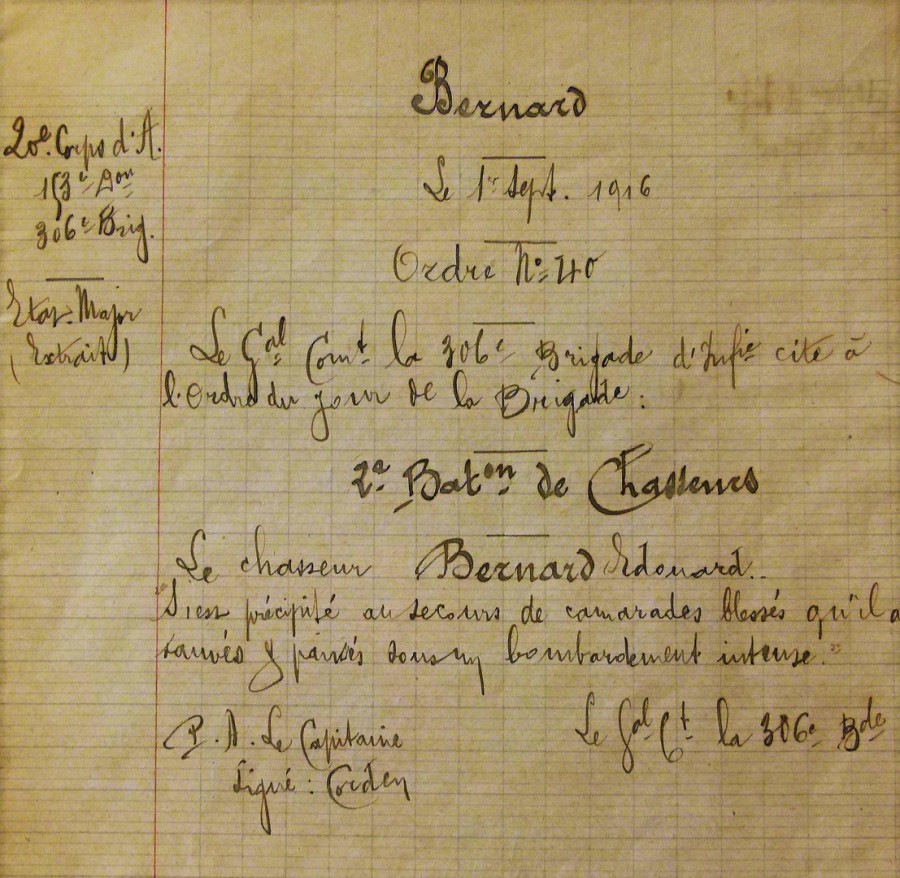 Bernard
20e. Corps d'A.
153e Don
306e Brig.
Le 1er Sept. 1916
Ordre No 40
Etat-Major
(Extrait)
Le Gal Comt la 306e Brigade d'Infie cite à
l'Ordre du jour de la Brigade :
2e Baton de Chasseurs
Le chasseur Bernard Edouard..
"S'est précipité au secours de camarades blessés qu'il a
sauvés & pansés sous un bombardement intense."
P.A. Le Capitaine
Signé :
Le Gal Ct la 306e Bde